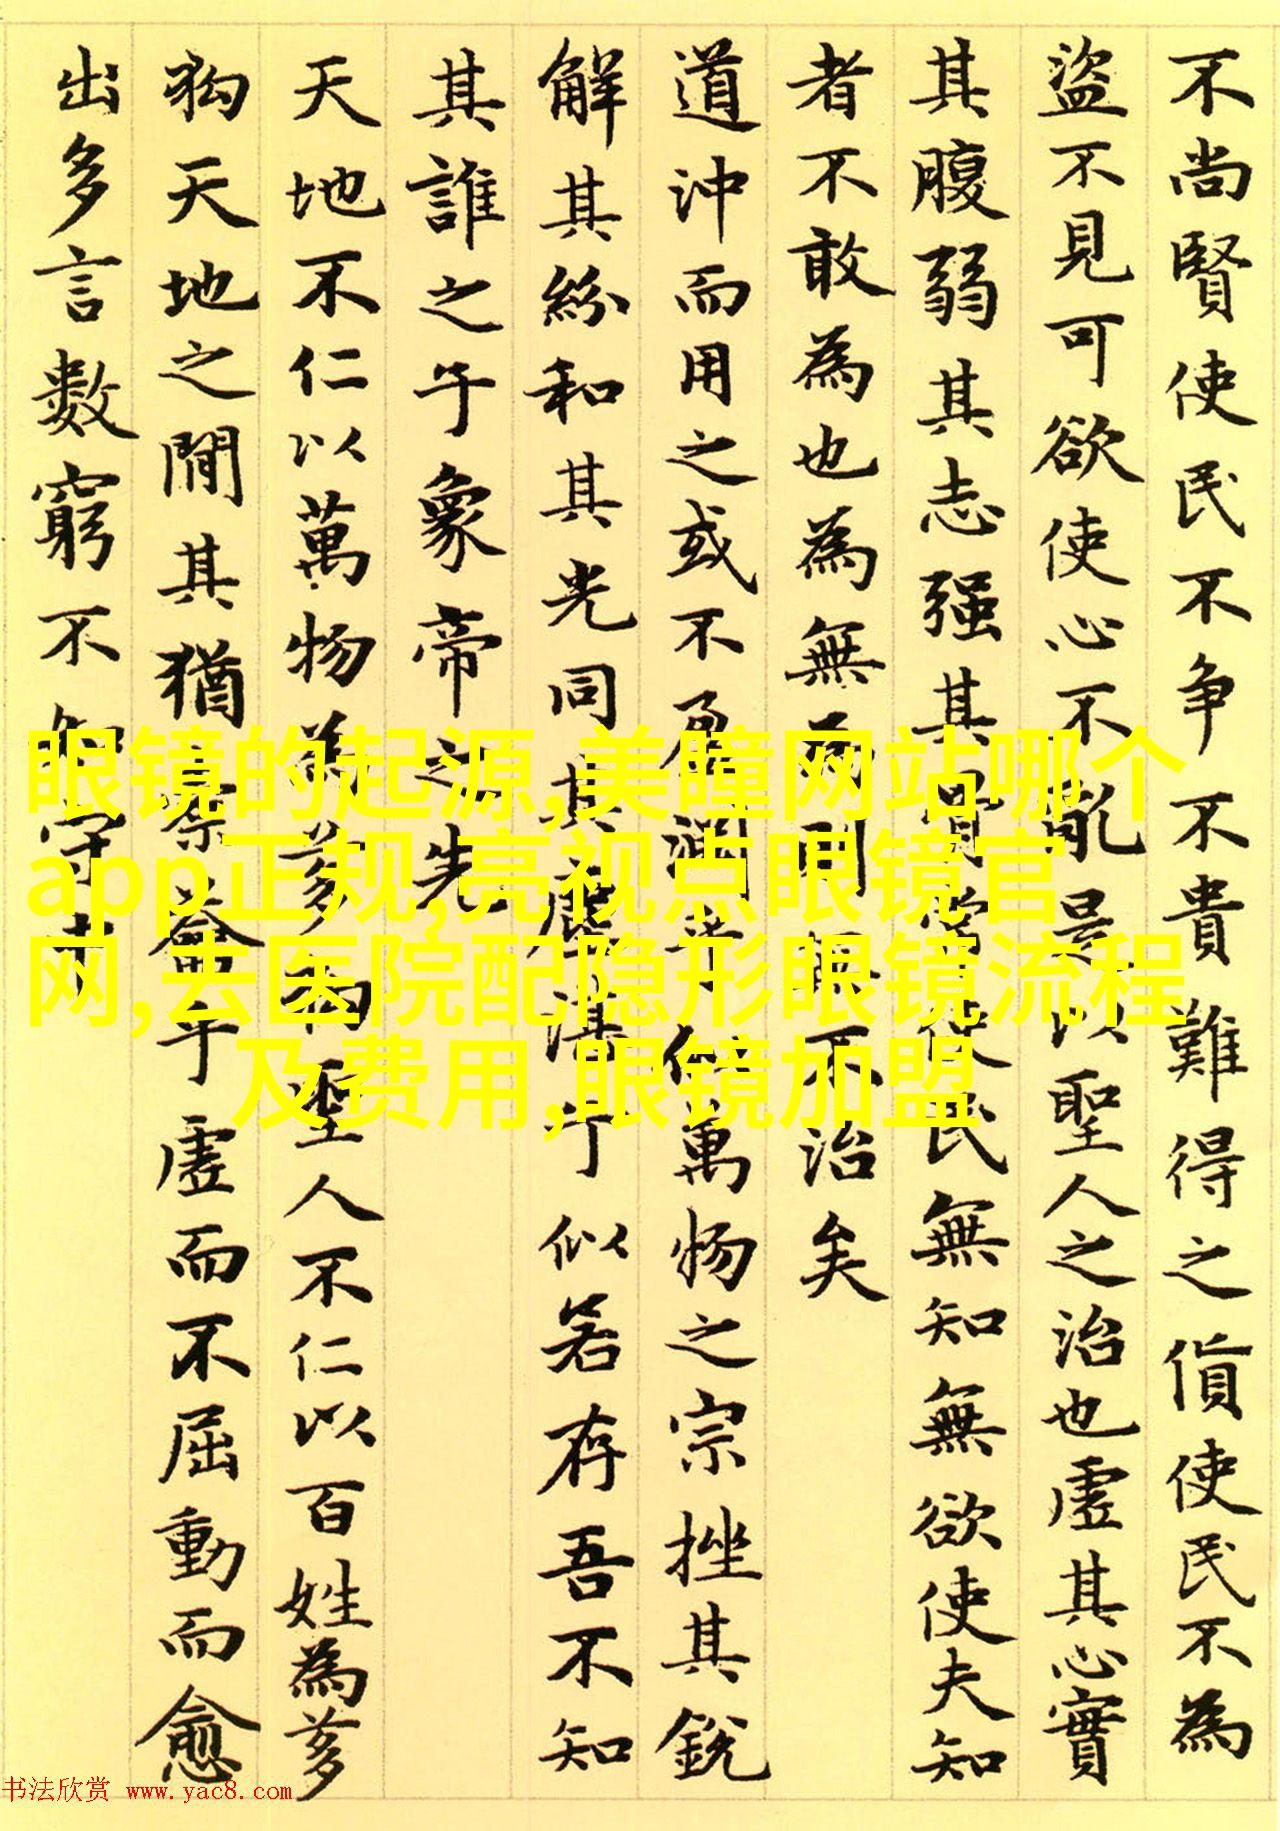 不尚賢使民不争不貴難得之貨使民不為
盜不見可欲使心不亂是以聖人之治也虛其心實
其腹弱其志强其骨常使民無知無欲使夫知
者不敢為也為無為則無不治矣
道沖而用之或不盈淵乎似萬物之宗挫其銳
解其紛和其光同其塵湛乎似若存吾不知
其誰之子象帝之先
天地不仁以萬物為芻狗聖人不仁以百姓為芻
狗天地之間其猶橐籥乎虛而不屈動而愈
出多言數窮不如守中
眼镜的起源,美瞳网站哪个
app正规,亮视点眼镜官
网,去医院配隐形眼镜流程
及费用,眼镜加盟
书法欣赏 www.yac8.com